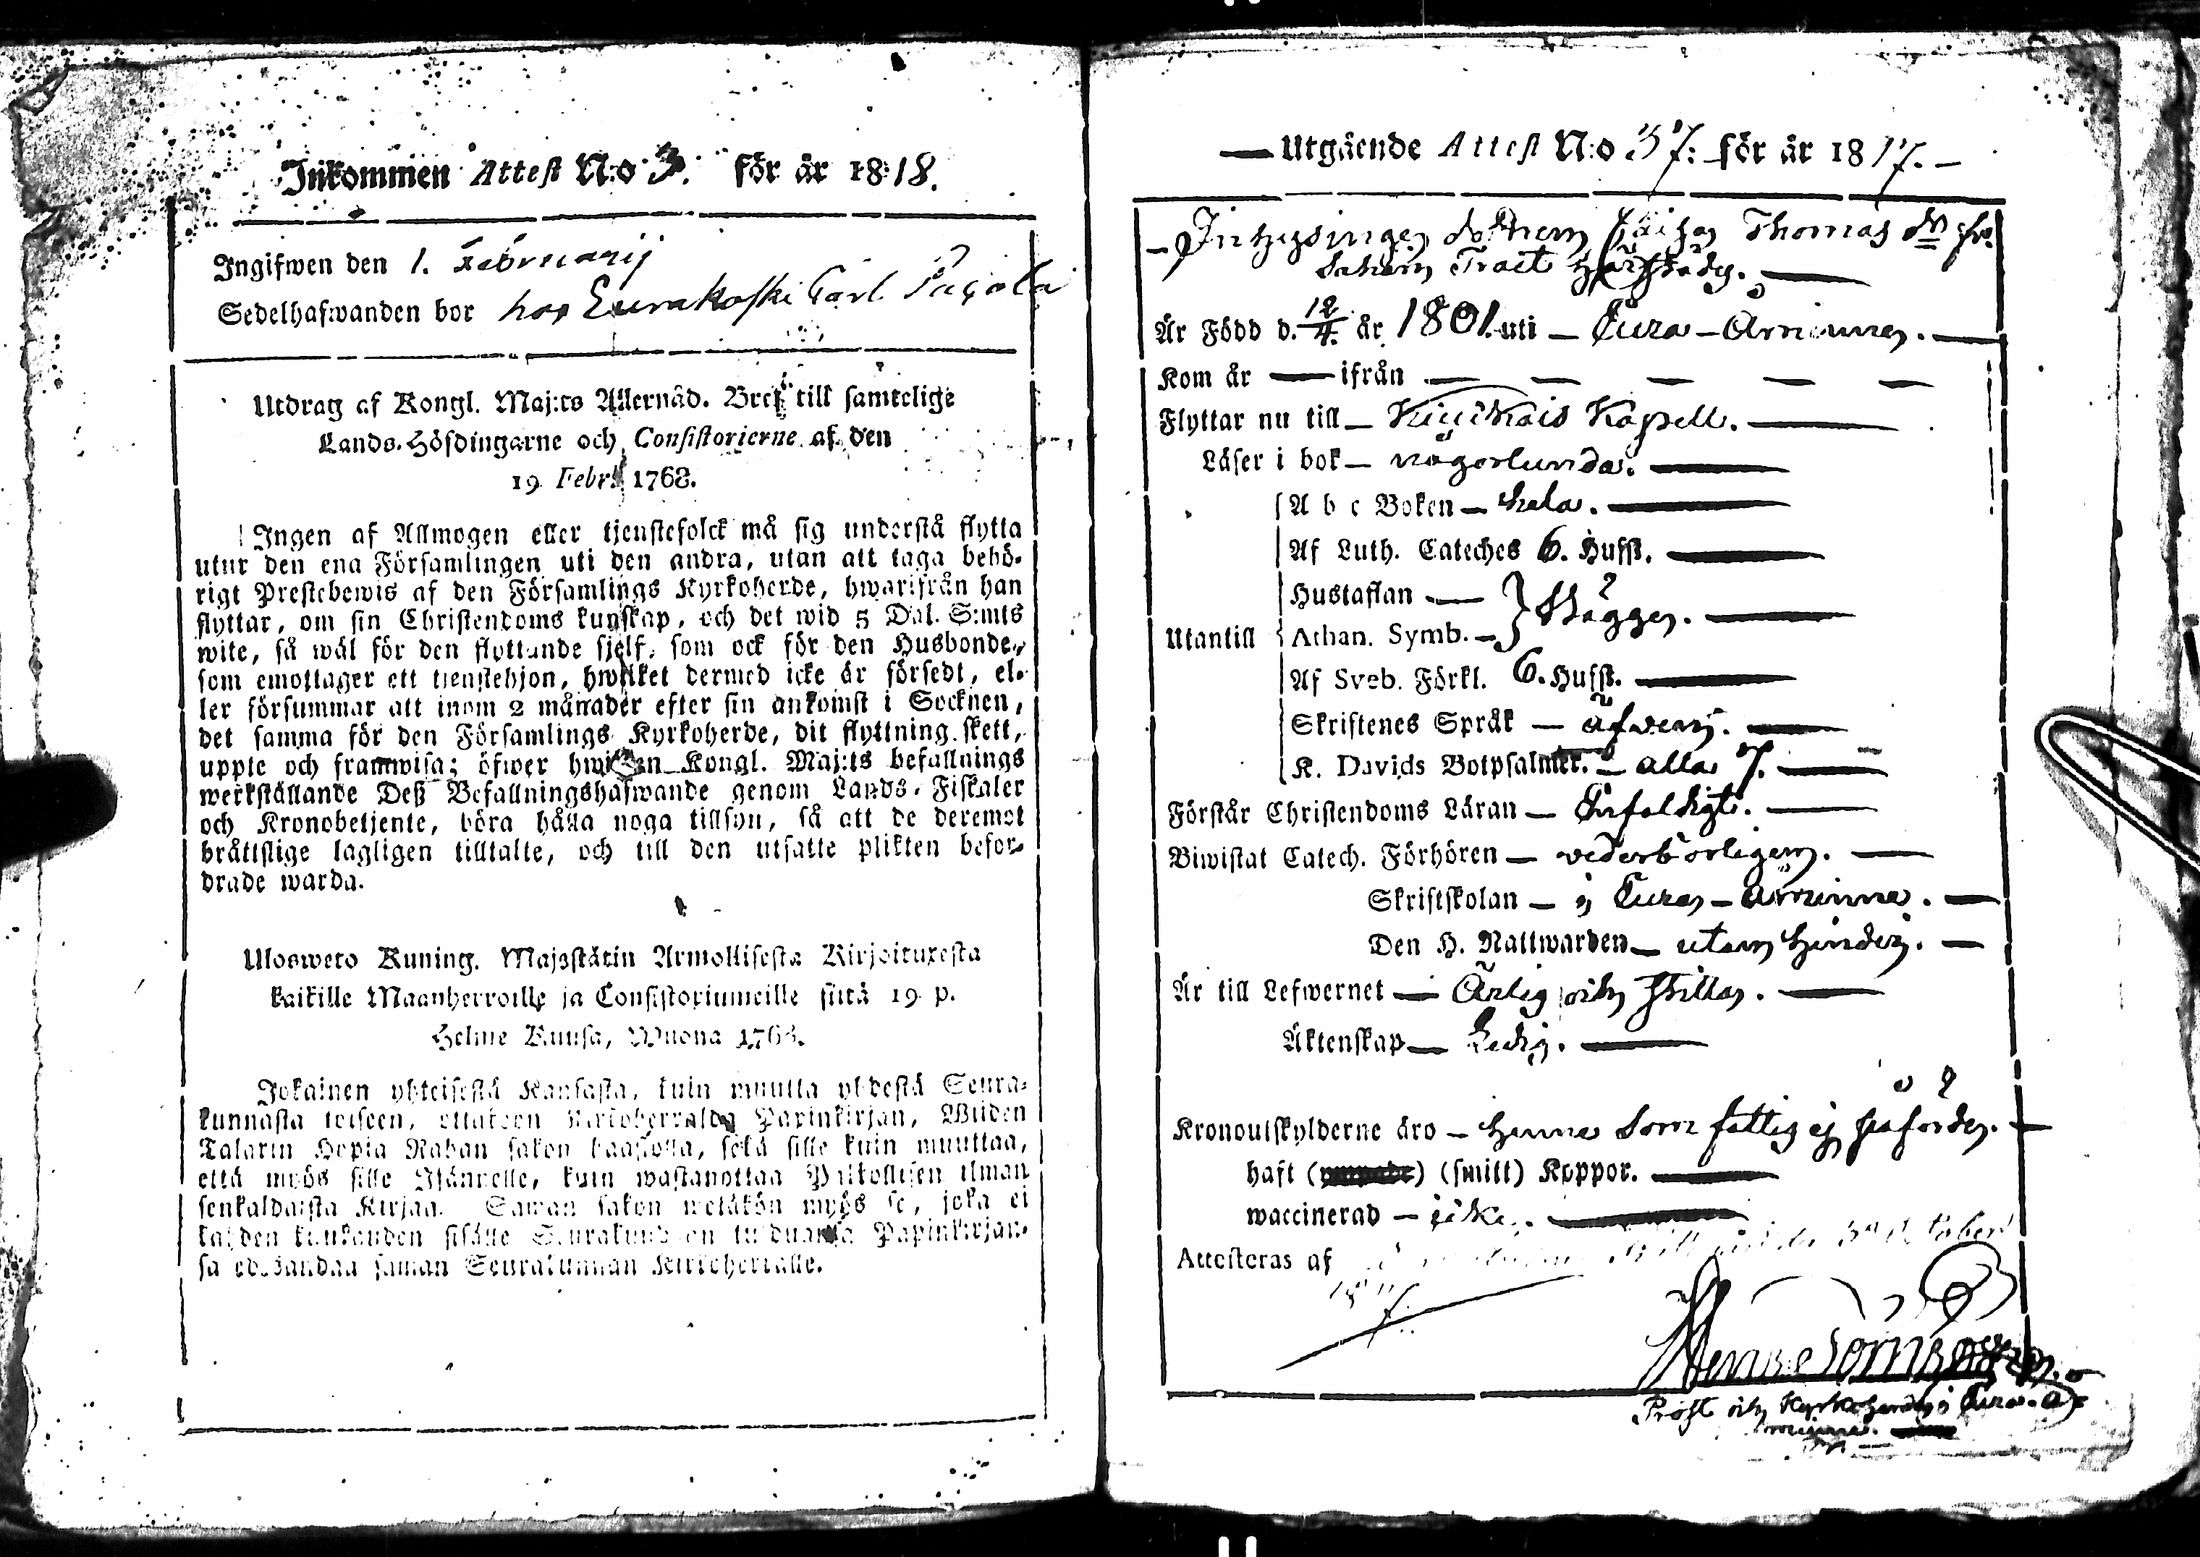 Inkommen Attest N:o 3. för år 1818.
Ingifwen den 1. Februarij
Sedelhafwanden bor hos Eurakoski Carl
Utdrag af Kongl. Maj:ts Allernåd. Bref till samtelige
Lands-Höfdingarne och Consistorierne af den
19 Febr. 1768.
Ingen af Allmogen eller tjenstefolck må sig understå flytta
utur den ena Församlingen uti den andra, utan att taga behö-
rigt Prestebewis af den Församlings Kyrkoherde, hwarifrån han
flyttar, om sin Christendoms kunskap, och det wid 5 Dal. S:mts
wite, så wäl för den flyttande sjelf, som ock för den Husbonde,
som emottager ett tjenstehjon, hwilket dermed icke är försedt, el-
ler försummar att inom 2 månader efter sin ankomst i Socknen,
det samma för den Församlings Kyrkoherde, dit flyttning skett,
uppte och framwisa; öfwer hwilken Kongl. Maj:ts befallnings
werkställande Deß Befallningshafwande genom Lands-Fiskaler
och Kronobetjente, böra hålla noga tillsyn, så att de deremot
bråttslige lagligen tilltalte, och till den utsatte plikten befor-
drade warda.
Ulosweto Kuning. Majestätin Armollisesta Kirjoituxesta
kaikille Maanherroille ja Consistoriumeille siitä 19 p.
Helme Kuusa, Wuona 1768.
Jokainen yhteisestä Kansasta, kuin muutta yhdestä Seura-
kunnasta toiseen, ottakoon Kirkoherralda Papinkirjan, Wiiden
Talarin Hopia Rahan sakon haastolla, sekä sille kuin muuttaa,
että myös sille Isännelle, kuin wastanottaa Palkollisen ilman
senkaldaista Kirjaa. Saman sakon wetäkön myös se, joka ei
kahden kuukauden sisälle Seurakundaan tulduansa Papinkirjan-
sa edesandaa saman Seurakunnan Kirkcherralle.
Utgående Attest N:o 37: för år 1817.
Inhysingen Thomas
Är Född d. 12/4. år 1801. uti Eura-Åminne.
Kom år ifrån
Flyttar nu till Kiukais Kapell.
Läser i bok någorlunda.
A b c Boken hela.
Af Luth. Cateches 6. Hufst.
Hustaflan
Utantill Athan. Symb. } Begge.
Af Sveb. Förkl. 6. Hufst.
Skriftenes Språk äfwen.
K. Davids Botpsalmer. alla 7.
Förstår Christendoms Läran Enfaldigt.
Biwistat Catech. Förhören wederbörligen.
Skriftskolan i Eura-Åminne.
Den H. Nattwarden utan hinder.
Är till Lefwernet Ärlig och stilla.
Äktenskap Ledig.
Kronoutskylderne äro henne som fattig ej påförde.
haft (smitt) Koppor.
waccinerad icke.
Attesteras af
1817.
Prost och Kyrkoherde i Eura-Å-
minne.